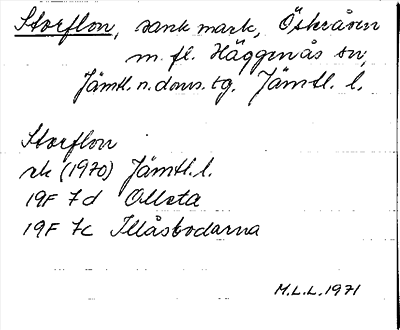 Storflon, sank mark, Östnåren
m. fl. Häggenås sn,
Jämtl. n. doms. tg. Jämtl. l.
Storflon
rk (1970) Jämtl. l.
19F 7d Ollsta
19F 7c Illåsbodarna
M.L.L. 1971